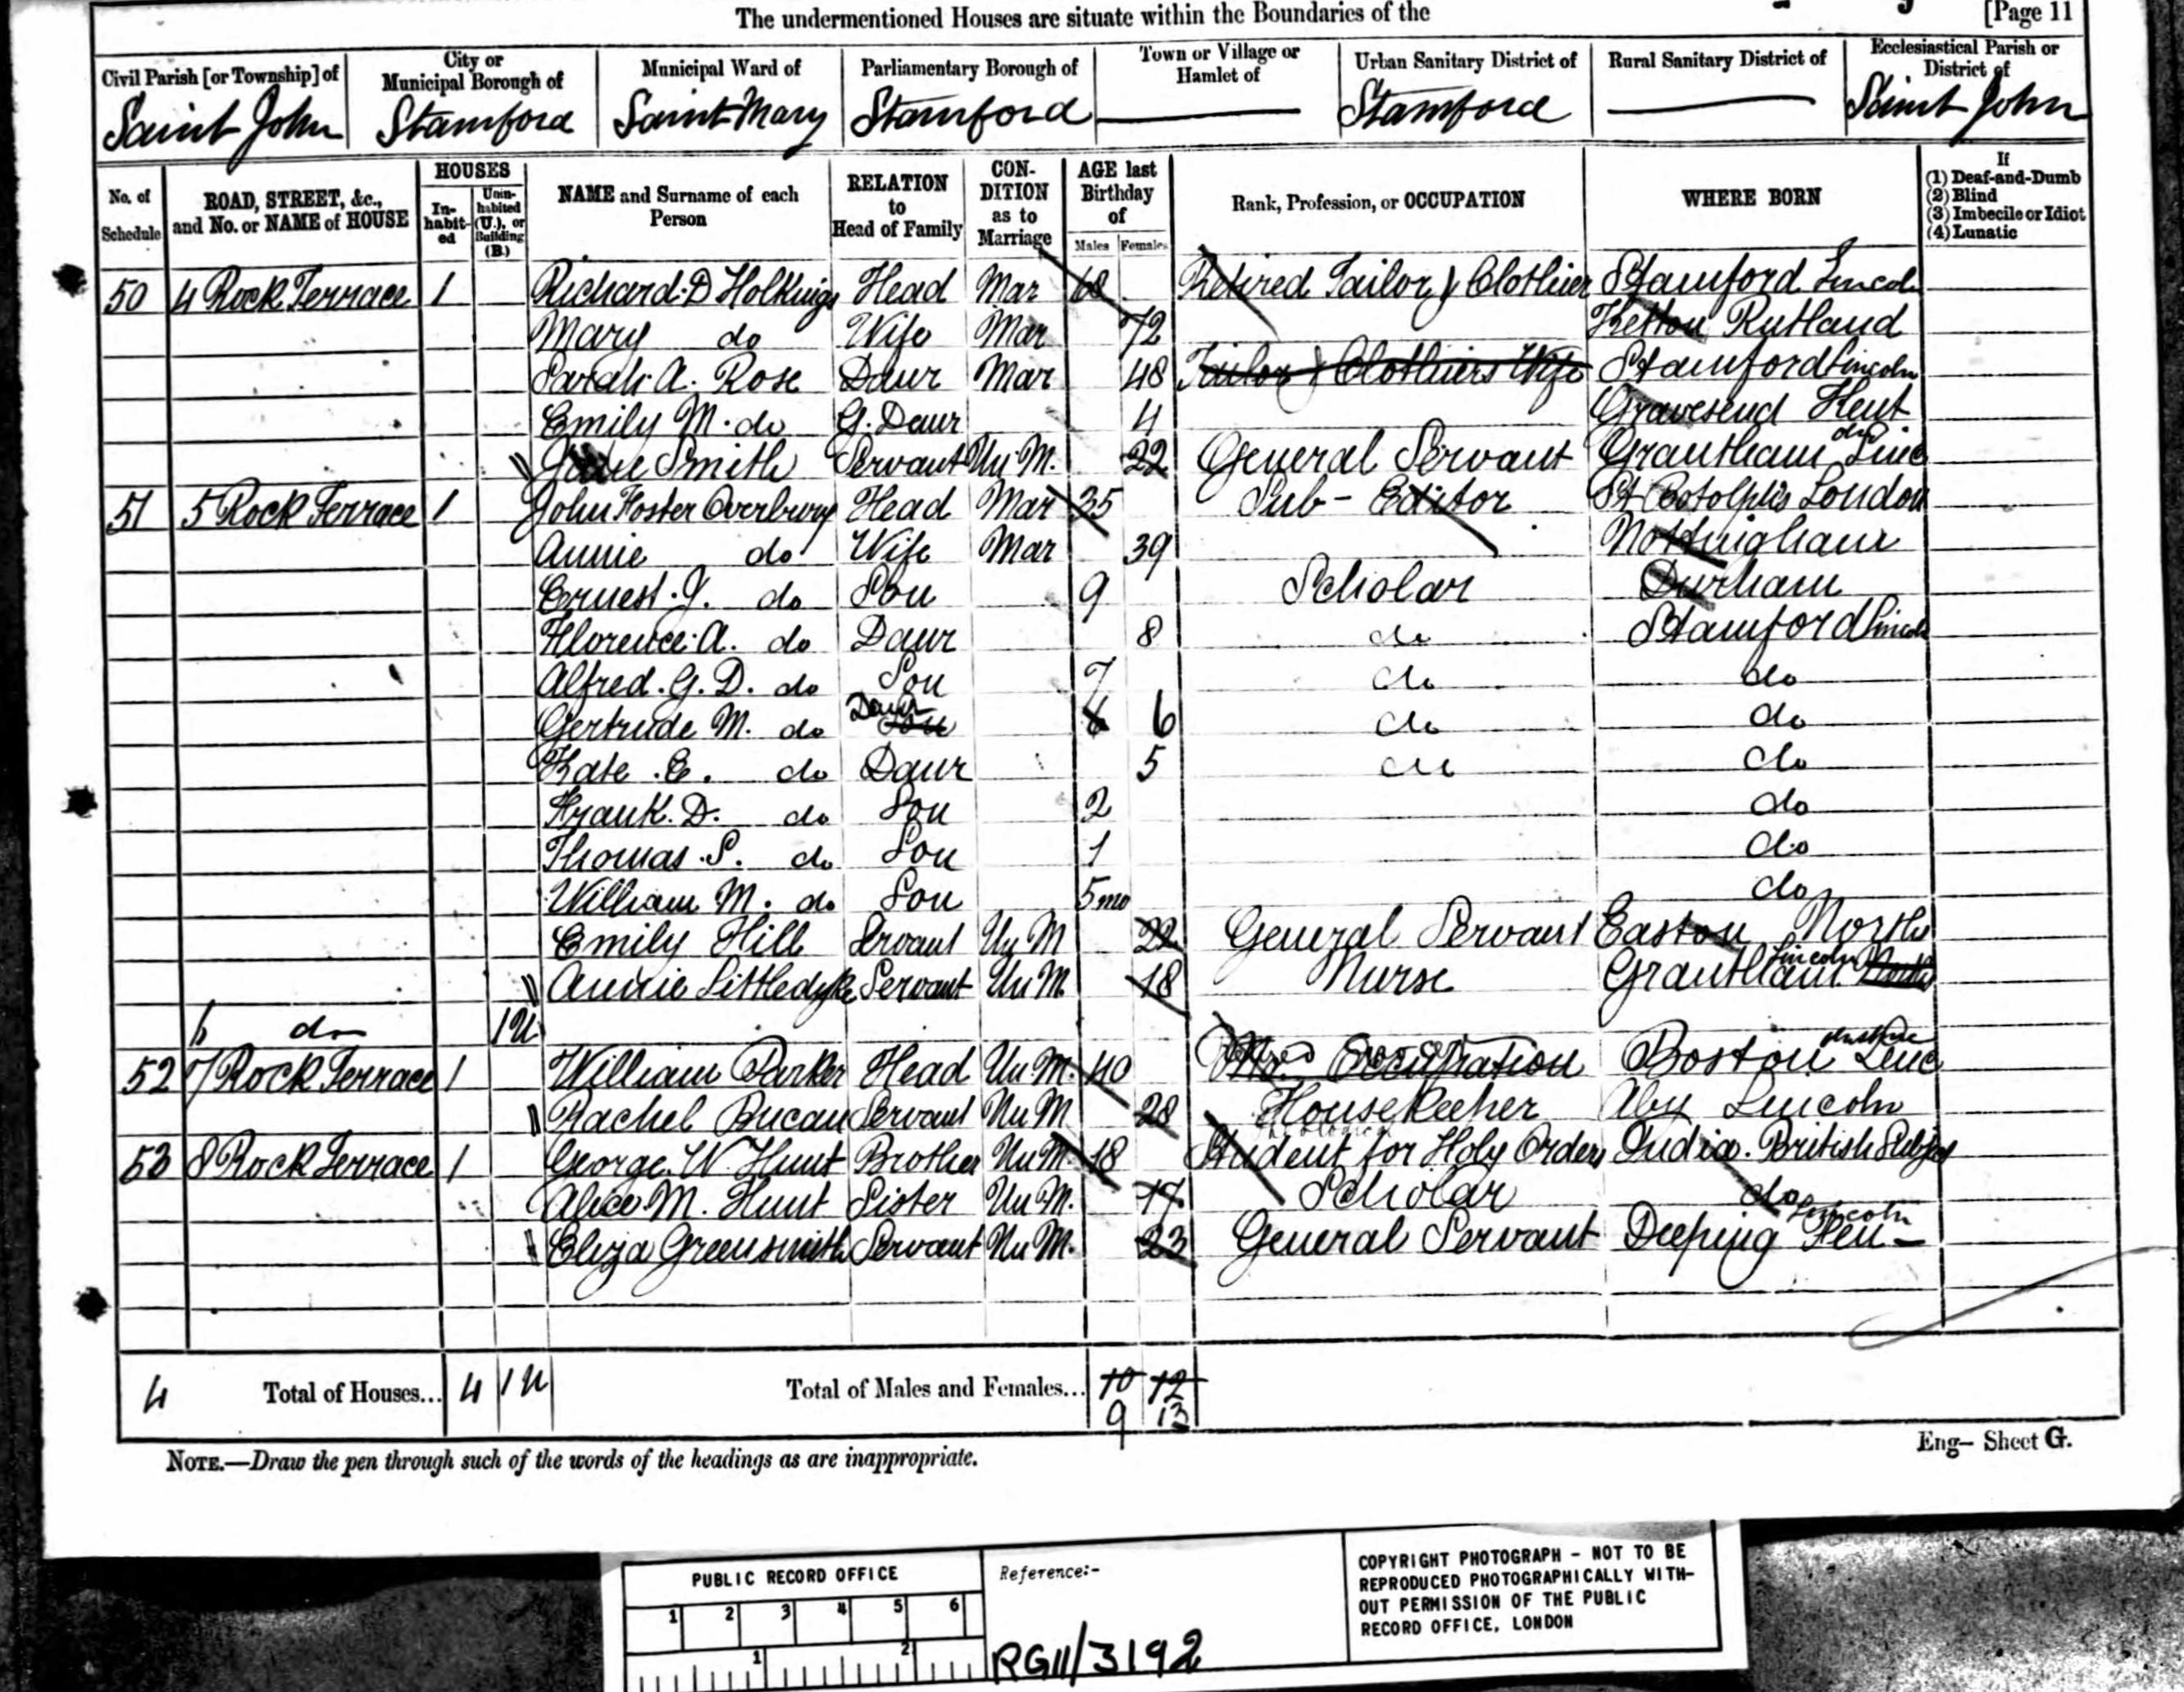 The undermentioned Houses are situate within the Boundaries of the [Page 11
Civil Parish [or Township] of City or Municipal Borough of Municipal Ward of Parliamentary Borough of Town or Village or Hamlet of Urban Sanitary District of Rural Sanitary District of Ecclesiastical Parish or District of
Saint John Stamford Saint Mary Stamford Stamford Saint John
No. of Schedule ROAD, STREET, &c., and No. or NAME of HOUSE HOUSES In-habit-ed Unin-habited (U.), or Building (B.) NAME and Surname of each Person RELATION to Head of Family CON-DITION as to Marriage AGE last Birthday of Males Females Rank, Profession, or OCCUPATION WHERE BORN If (1) Deaf-and-Dumb (2) Blind (3) Imbecile or Idiot (4) Lunatic
50 4 Rock Terrace 1 Richard. D Holkings Head Mar 68 Retired Tailor & Clothier Stamford Lincoln
Mary do Wife Mar 72 Ketton Rutland
Sarah. A. Rose Daur Mar 48 Tailor & Clothiers Wife Stamford Lincoln
Emily M. do G. Daur 4 Gravesend Kent
Jane Smith Servant Un M. 22 General Servant Grantham do Linc
51 5 Rock Terrace 1 John Foster Overbury Head Mar 35 Sub-Editor St Botolph's London
Annie do Wife Mar 39 Nottingham
Ernest. J. do Son 9 Scholar Durham
Florence. A. do Daur 8 do Stamford Lincoln
Alfred. G. D. do Son 7 do do
Gertrude M. do Daur Son 6 6 do do
Kate. E. do Daur 5 do do
Frank. D. do Son 2 do
Thomas. S. do Son 1 do
William M. do Son 5 mo do
Emily Hill Servant Un M 22 General Servant Easton North
Annie Littledyke Servant Un M 18 Nurse Grantham Lincoln North
6 do 1 U
52 7 Rock Terrace 1 William Parker Head Un M. 40 No Occupation Boston Linc
Rachel Bucan Servant Un M 28 Housekeeper Aby Lincoln
53 8 Rock Terrace 1 George. W. Hunt Brother Un M. 18 Theological Student for Holy Orders India. British Subject
Alice M. Hunt Sister Un M. 17 Scholar do
Eliza Greensmith Servant Un M. 23 General Servant Deeping Fen - Lincoln
4 Total of Houses... 4 1 U Total of Males and Females... 10 12
9 13
NOTE.—Draw the pen through such of the words of the headings as are inappropriate.
Eng— Sheet G.
PUBLIC RECORD OFFICE
1 2 3 4 5 6
1 2
Reference:-
RG11/3192
COPYRIGHT PHOTOGRAPH - NOT TO BE
REPRODUCED PHOTOGRAPHICALLY WITH-
OUT PERMISSION OF THE PUBLIC
RECORD OFFICE, LONDON